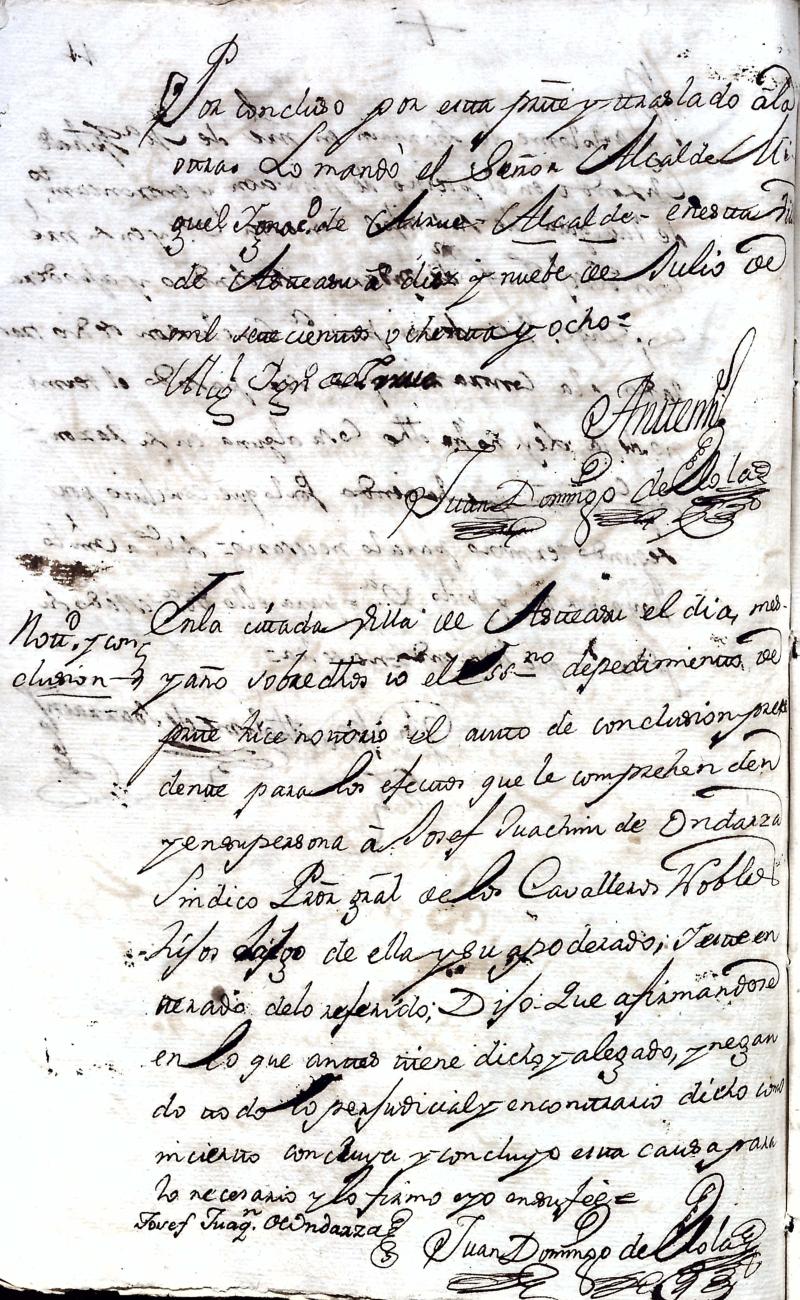 Por concluso por esta prte y traslado à la
otra: Lo mandò el Señor Alcalde Mi
guel Ignac.o de Yarrue - Alcalde - en esta Vi
de Asteasu à diez y nuebe de Julio de
mil setecientos ochenta y ocho =
Mig.l Ign.o de Yarrue
Antemi
Juan Domingo de Lola
Nott.n y con
clusion
En la citada Villa de Asteasu el dia, mes
y año sobredhos yo el Ess.no de pedimiento de
prte hice notorio el auto de conclusion prece
dente para los efectos que le comprehenden
y en su persona à Josef Juachin de Ondarza
Sindico Pror gral de los Cavalleros Nobles
hijos dalgo de ella y su apoderado; y este en
terado de lo referido; Dijo: Que afirmandose
en lo que antes tiene dicho y alegado, y negan
do todo lo perjudicial y en contrario dicho como
incierto concluya y concluyo esta causa para
lo necesario y lo firmo e yo en su fee =
Josef Juaq.n de Ondarza
Juan Domingo de Lola